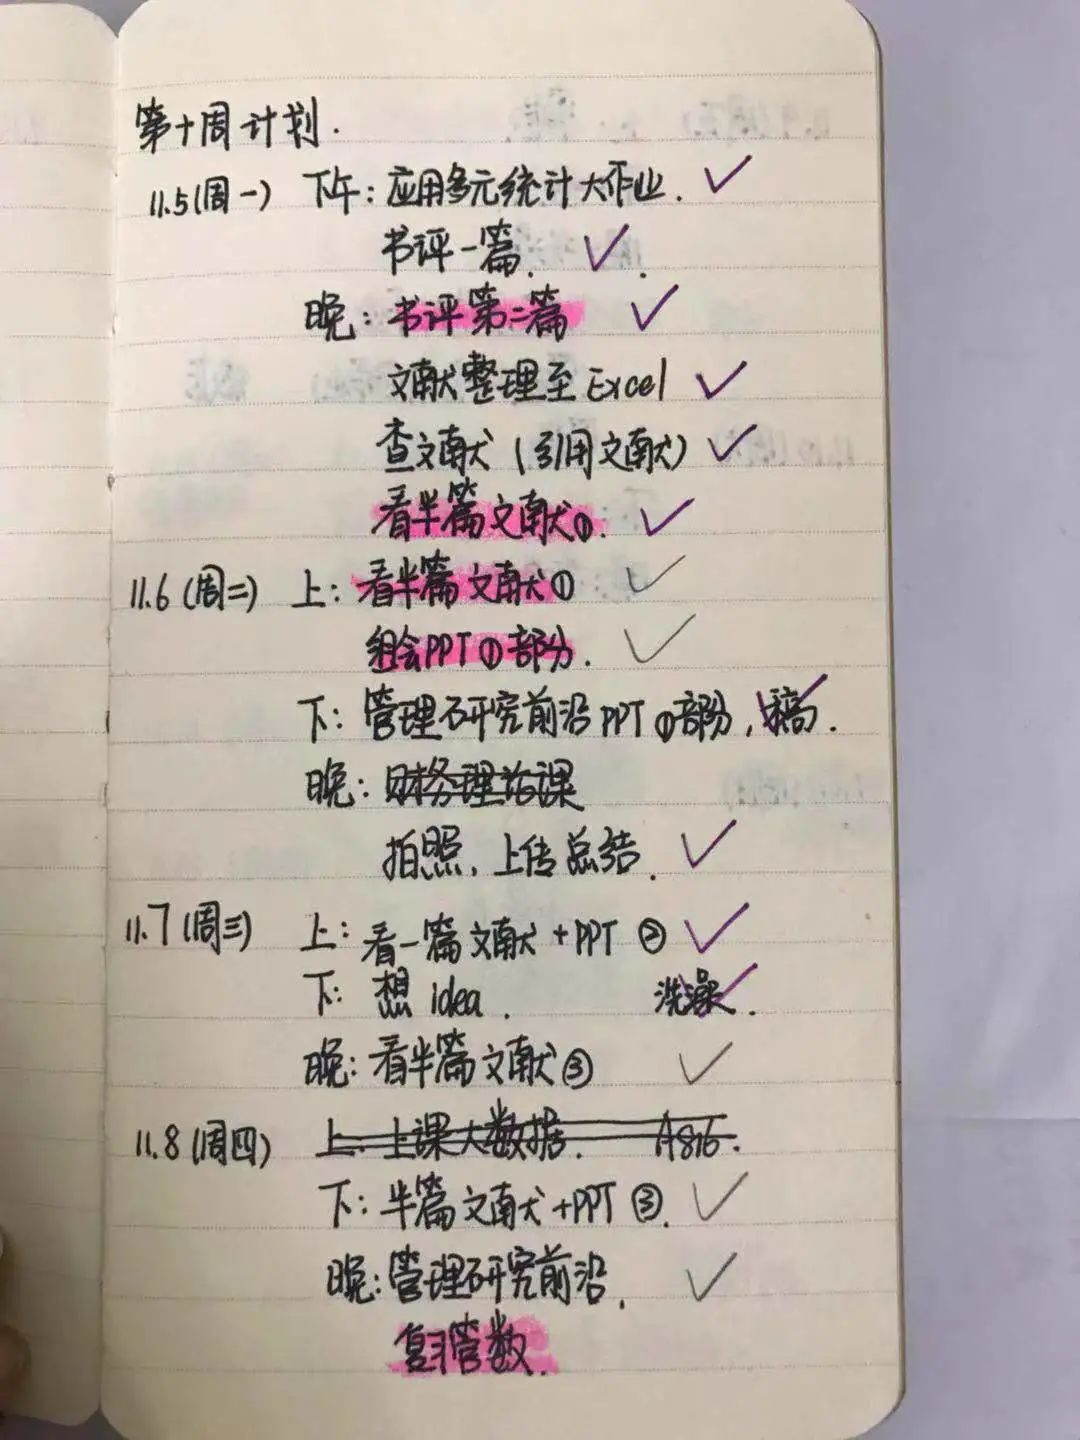 第十周计划.
11.5(周一) 下午: 应用多元统计大作业.
书评一篇.
晚: 书评第二篇
文献整理至Excel
查文献 (引用文献)
看半篇文献①.
11.6 (周二) 上: 看半篇文献①
组会PPT①部分.
下: 管理研究前沿PPT①部分, 稿.
晚: 财务理论课
拍照, 上传总结.
11.7 (周三) 上: 看一篇文献+PPT ②
下: 想idea. 洗澡.
晚: 看半篇文献③
11.8 (周四) 上: 上课大数据. A816.
下: 半篇文献+PPT ③.
晚: 管理研究前沿.
复习管数.